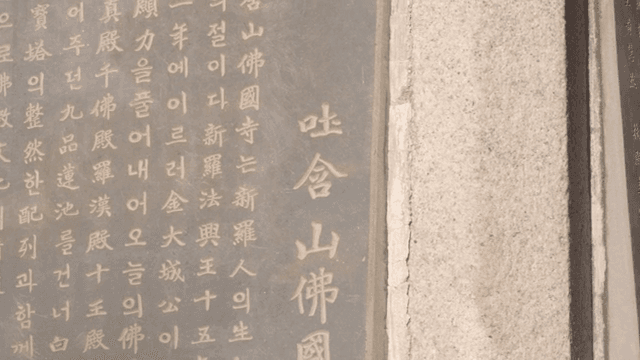 吐含山佛國
含山佛國寺는新羅人의生
의절이다新羅法興王十五
一年에이르러金大城公이
願力을풀어내어오늘의佛
眞殿千佛殿羅漢殿十王殿
이주던九品蓮池를건너白
寶塔의整然한配列과함께
으로佛敎文